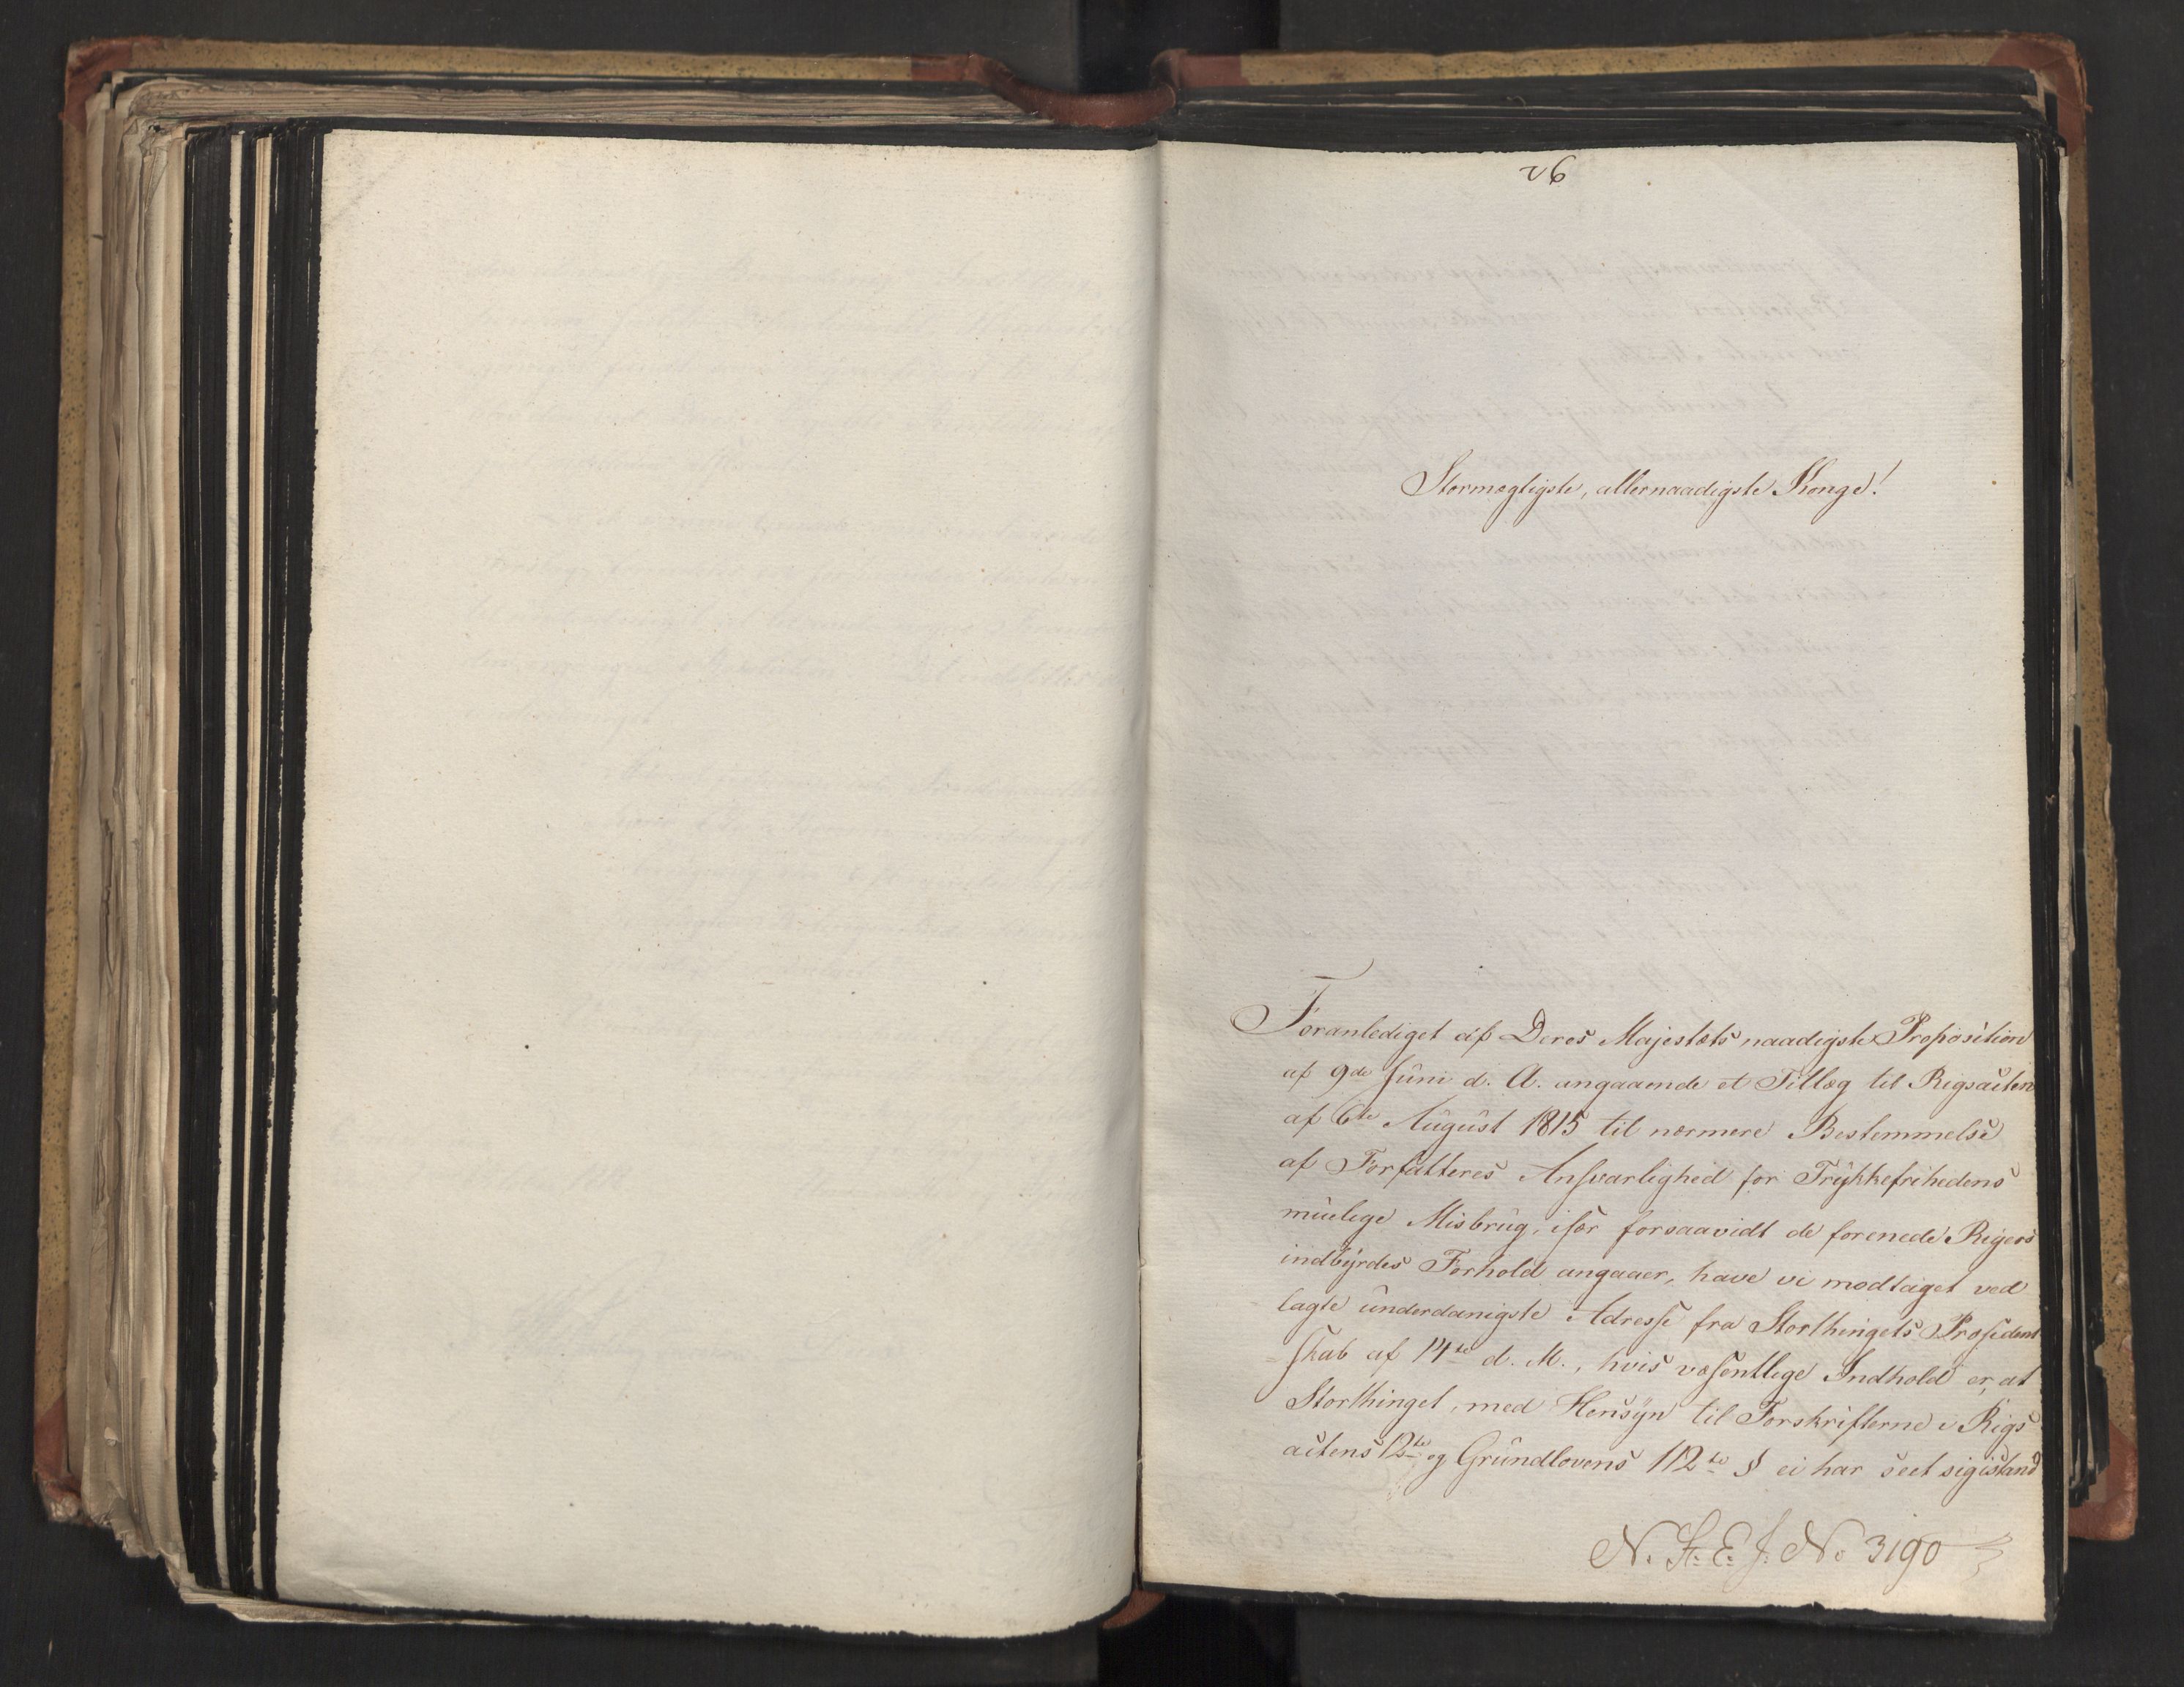 26
Stormægtigste, allernaadigste Konge!
Foranlediget af Deres Majestæts naadigste Proposition
af 9de Juni d. A. angaaende et Tillæg til Rigsacten
af 6te August 1815 til nærmere Bestemmelse
af Forfatteres Ansvarlighed for Trykkefrihedens
muelige Misbrug, især forsaavidt de forenede Rigers
indbyrdes Forhold angaaer, have vi modtaget ved
lagte underdanigste Adresse fra Storthingets Præsident
=skab af 14de d. M., hvis væsentlige Indhold er, at
Storthinget, med Hensyn til Forskrifterne i Rigs
actens 12te og Grundlovens 112te § ei har seet sig istand
N. St. E. J. No 3190